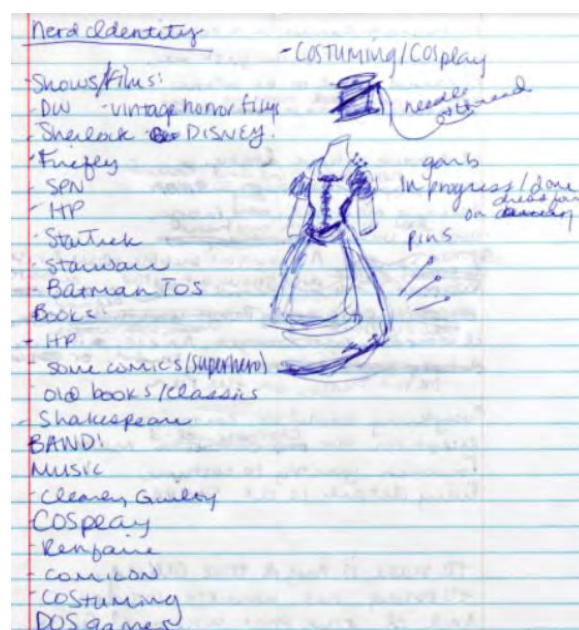 Nerd Identity
- Costuming/Cosplay
- Shows/Films:
- DW - vintage horror films
- Sherlock - DISNEY.
- Firefly
- SPN
- HP
- Star Trek
- Starwars
- Batman TOS
Books:
- HP
- some comics (superhero)
- old books/classics
- Shakespeare
BAND!
MUSIC
- Clearly Guilty
COSplay
- Renfaire
- comicon
- COStuming
DOS games
needle
thread
garb
In progress/done
dress form
on
pins